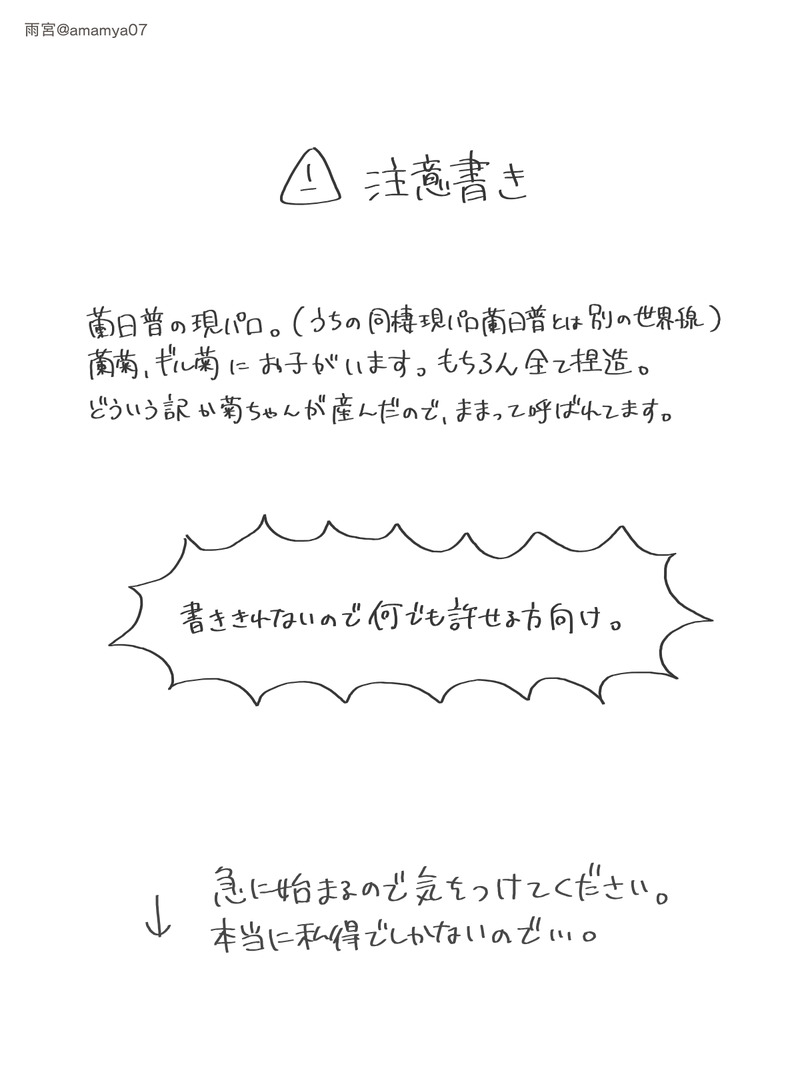 雨宮@amamya07
注意書き
蘭日普の現パロ。(うちの同棲現パロ蘭日普とは別の世界線)
蘭菊、ギル菊にお子がいます。もちろん全て捏造。
どういう訳か菊ちゃんが産んだので、ままって呼ばれてます。
書ききれないので何でも許せる方向け。
↓ 急に始まるので気をつけてください。
本当に私得でしかないので…。